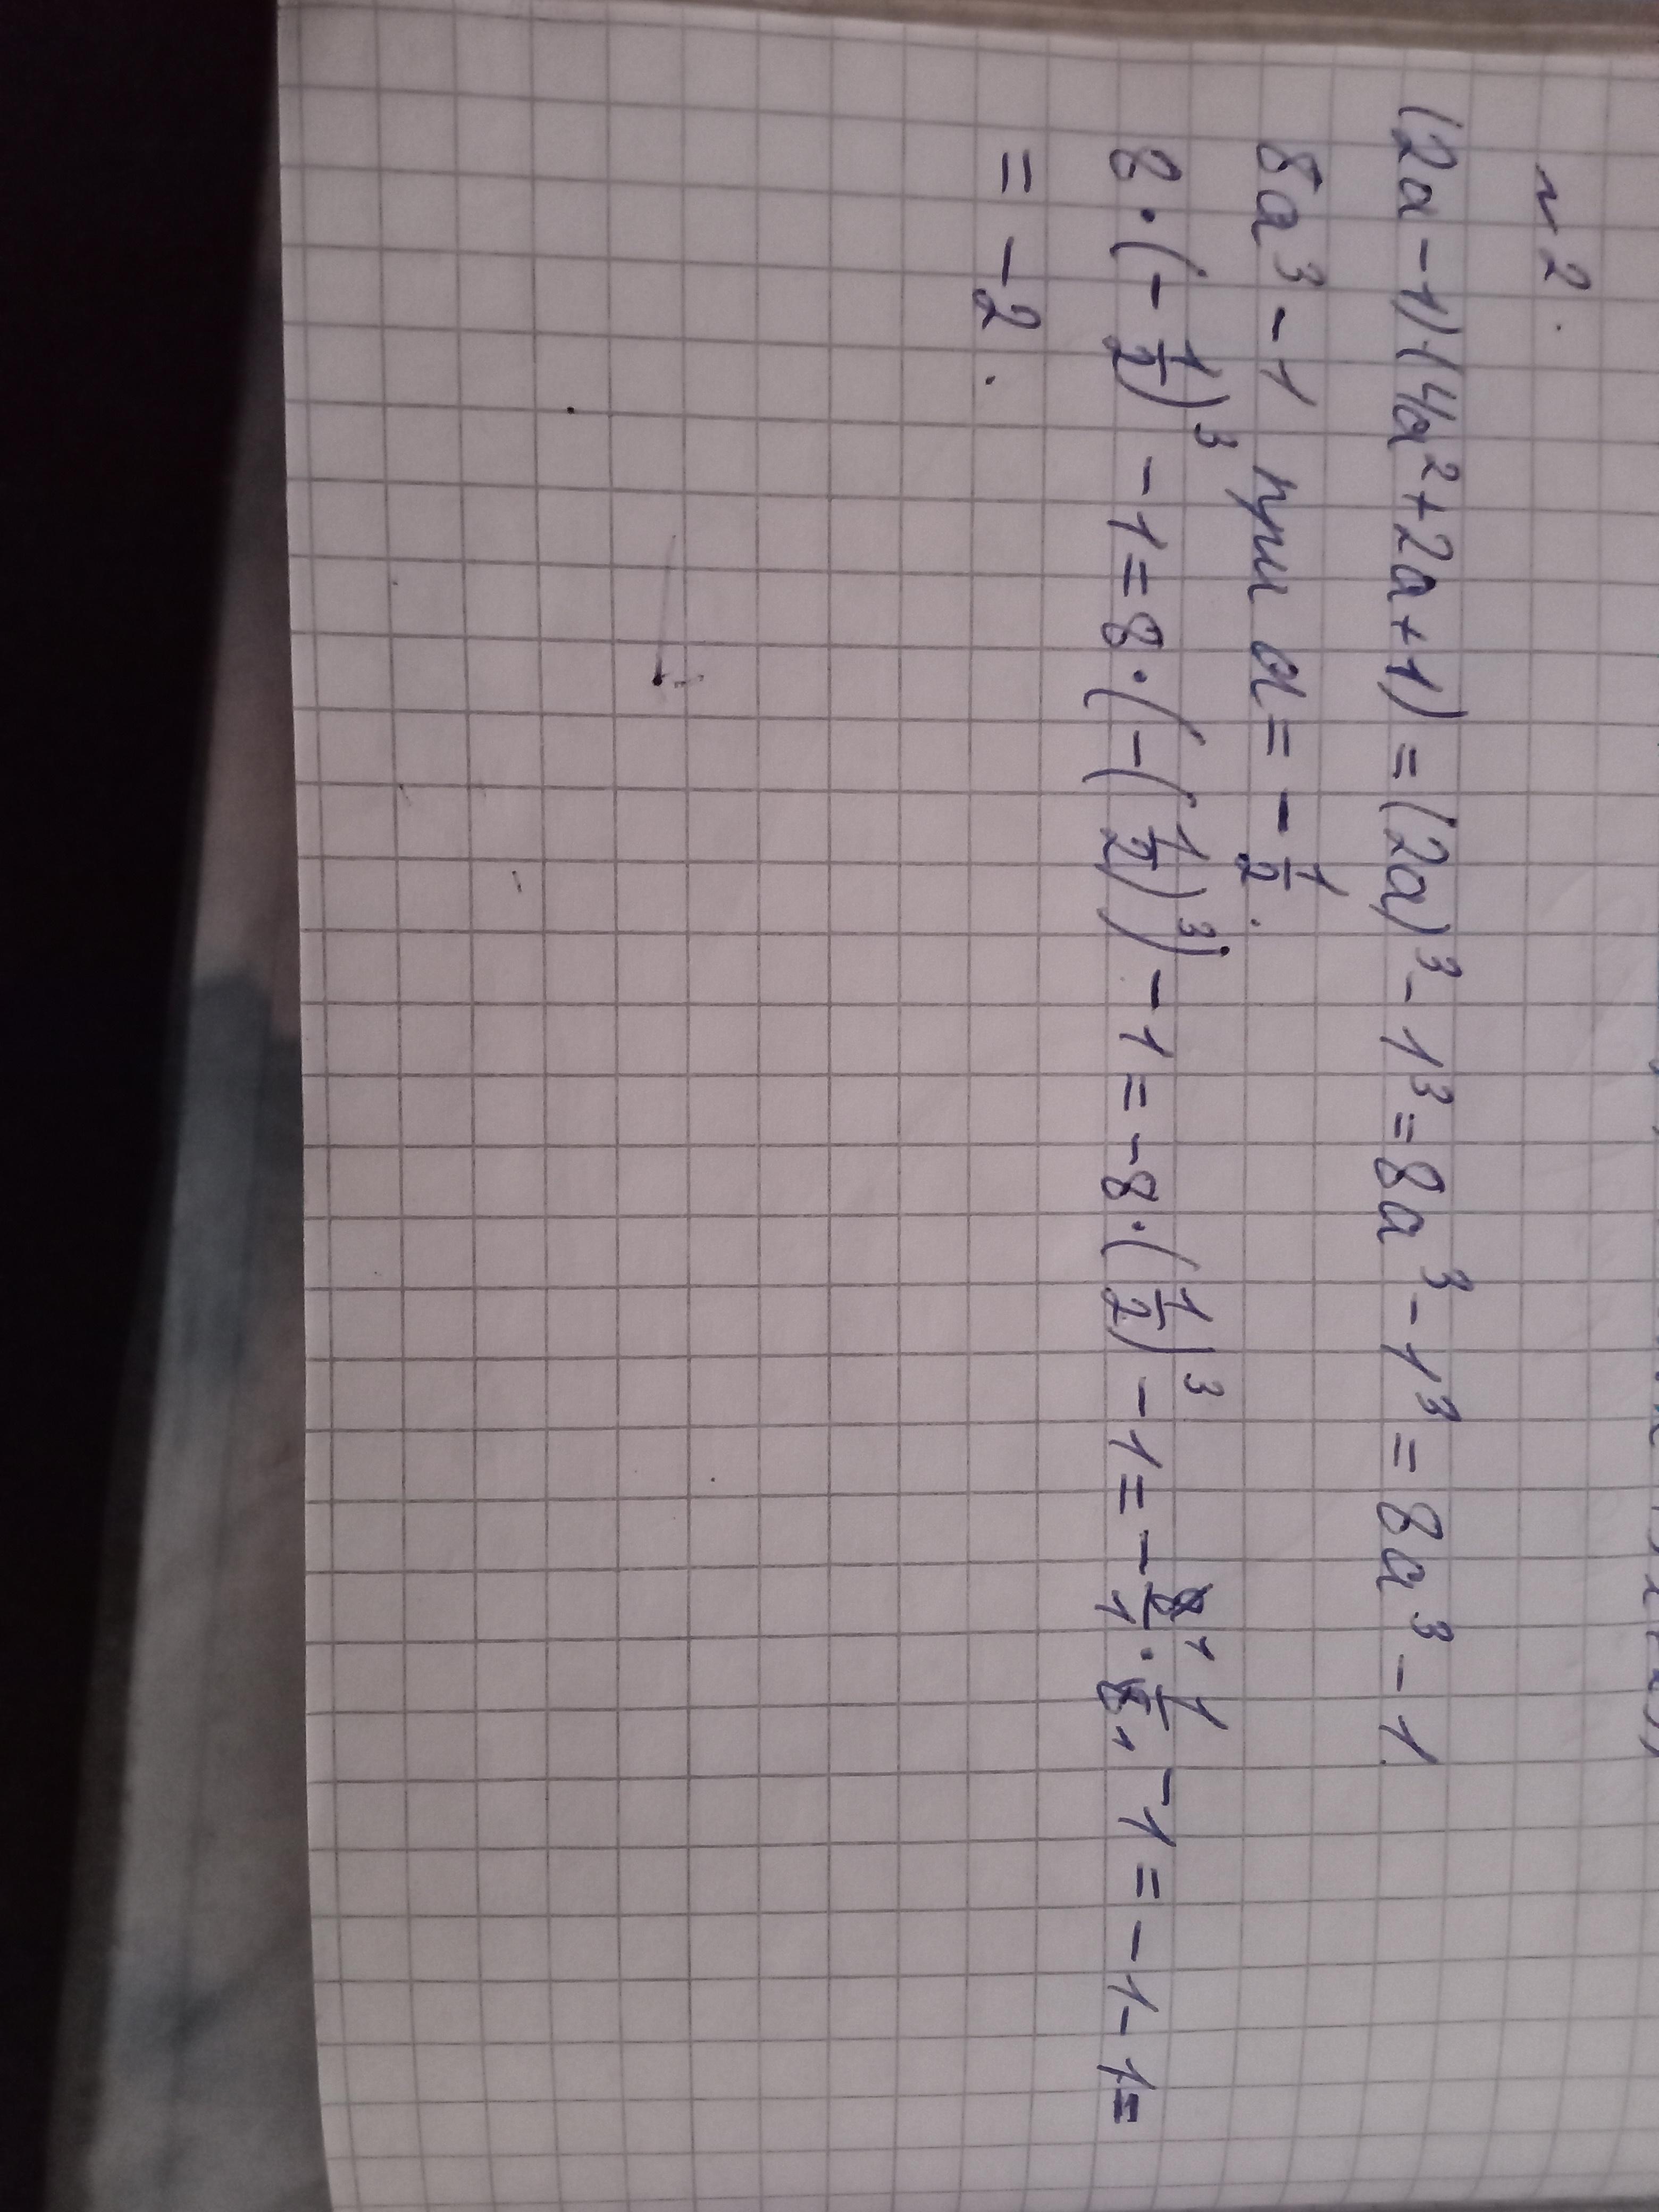 №2.
(2a-1)(4a²+2a+1)=(2a)³-1³=8a³-1³=8a³-1
8a³-1 при a=-1/2.
8·(-1/2)³-1=8·(-(1/2)³)-1=-8·(1/2)³-1=-8/1·1/8-1=-1-1=
=-2.